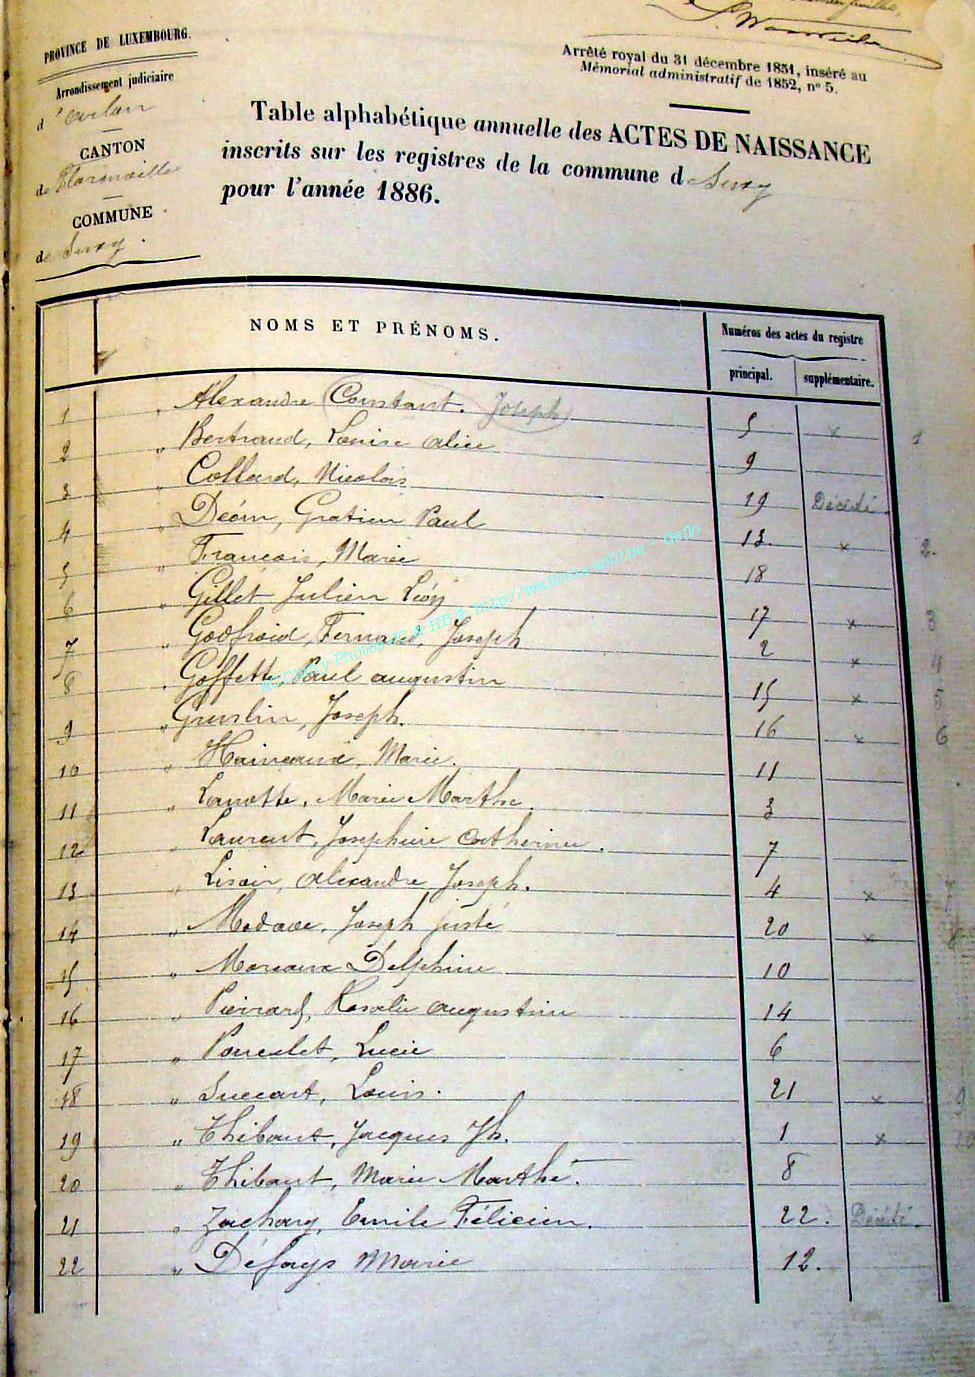 PROVINCE DE LUXEMBOURG.
Arrondissement judiciaire
d'Arlon
CANTON
de Florenville
COMMUNE
de Suxy.
Arrêté royal du 31 décembre 1851, inséré au
Mémorial administratif de 1852, n° 5.
Table alphabétique annuelle des ACTES DE NAISSANCE
inscrits sur les registres de la commune de Suxy
pour l'année 1886.
NOMS ET PRÉNOMS.
Numéros des actes du registre
principal. supplémentaire.
1 " Alexandre Constant. Joseph 5 x 1
2 " Bertrand, Louise Alice 9
3 " Collard, Nicolas 19 Décédé.
4 " Déom, Gratien Paul 13. x 2.
5 " François, Marie 18
6 " Gillet Julien Léon 17 x 3
7 " Godfroid, Fernand, Joseph 2 x 4
8 " Goffette, Paul augustin 15 x 5
9 " Guislin, Joseph. 16 x 6
10 " Haineaux, Marie. 11
11 " Lanotte, Marie Marthe. 3
12 " Laurent, Joséphine Catherine. 7
13 " Lisoir, Alexandre Joseph. 4 x
14 " Modave, Joseph juste 20 x 8
15 " Moreaux Delphine 10
16 " Pierrard, Rosalie augustine 14
17 " Poncelet, Lucie 6
18 " Succart, Louis. 21 x 9
19 " Thibaut, Jacques Jh. 1 x
20 " Thibaut, Marie Marthe. 8
21 " Zachary, Emile Félicien. 22. Décédé.
22 " Défays Marie 12.